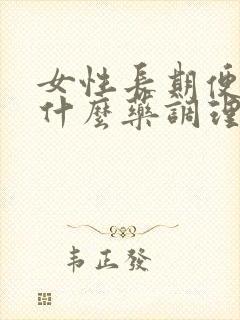 女性長期便
什麼藥調理
韦正發